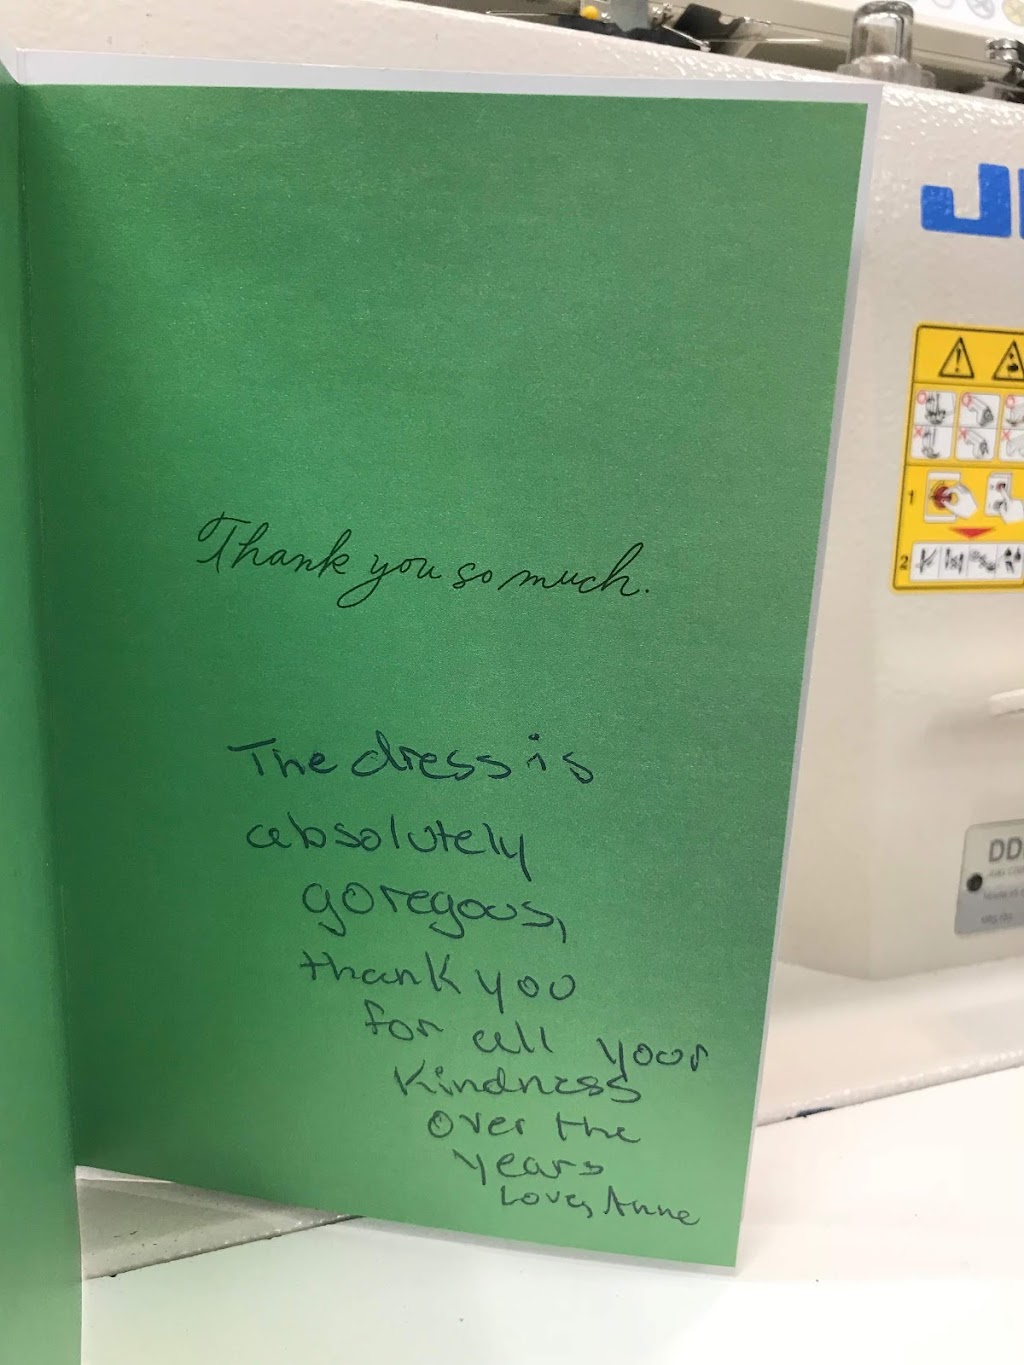 Thank you so much.
The dress is
absolutely
goregous,
thank you
for all your
kindness
over the
years
Love, Anne
1
2
DD